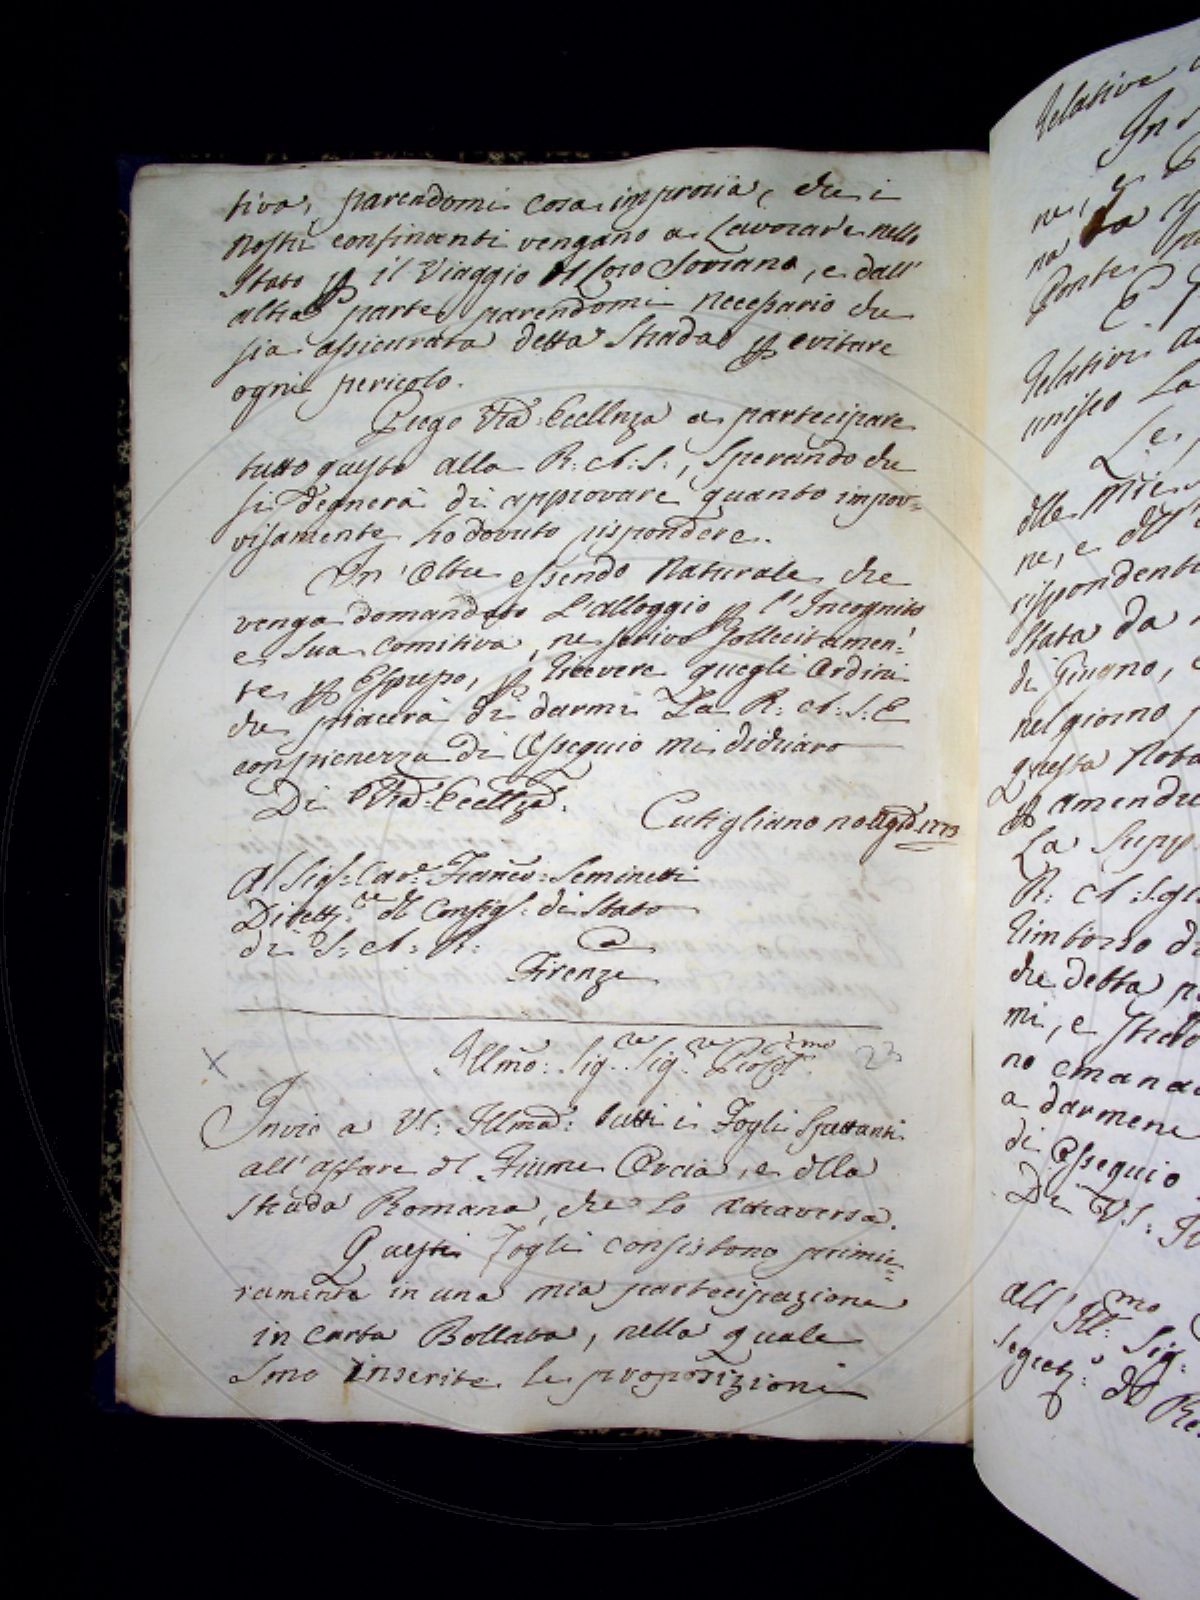 tiva, parendomi cosa impropia, che i
nostri confinanti vengano a Lavorare nello
Stato p il Viaggio dl Loro Sovrano, e dall'
altra parte parendomi necessario che
sia assicurata detta Strada p evitare
ogni pericolo.
Prego Vra. Eccellnza a partecipare
tutto questo alla R: A: S:, Sperando che
si degnerà di approvare quanto improv=
visamente ho dovuto rispondere.
In'Oltre essendo Naturale che
venga domandato L'alloggio p l'Incognito
e sua comitiva, ne scrivo sollecitamen=
te p Espresso, p ricevere quegli Ordini
che piacerà di darmi La R: A: S: E
con pienezza di Ossequio mi dichiaro
Di Vra. Eccellza.
Cutigliano 1773
Al Sigr: Cave. Franco: Seminetti
Dirette. dl Consigl: di Stato
di S: A: R:
Firenze
Illmo: Sigre. Sigre. Prone. Colmo 23
X
Invio a VS: Illma: tutti i Fogli Spettanti
all'affare dl Fiume, e dlla
Strada Romana, che lo attraversa.
Questi Fogli consistono primie=
ramente in una mia partecipazione
in carta Bollata, nella quale
Sono inserite le proposizioni
Relative
In
ne, e
na
Ponte
E
Relativi
unisco La
Le
dlle mie
ne, e dll
rispondenti
Stata da
di Giugno,
nel giorno
questa Nota
p amendue
La Supp
R: A: S.
rimborso di
che detta
mi, e
no emana
a darmene
di Ossequio
Di VS: Il
All' Illmo. Sig:
Segret: dl Re